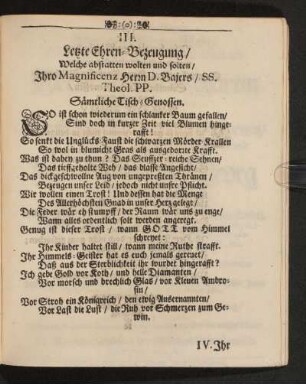 :(o):
III.
Letzte Ehren-Bezeugung/
Welche abstatten wolten und solten/
Ihro Magnificenz Herrn D. Bajers/ SS.
Theol. PP.
Sämtliche Tisch-Genossen.
SO ist schon wiederum ein schlancker Baum gefallen/
Sind doch in kurtzer Zeit viel Blumen hinge-
rafft!
So senckt die Unglücks Faust die schwartzen Mörder-Krallen
So wol in blumicht Gras als ausgedorrte Krafft.
Was ist dabey zu thun? Das Seuffzer-reiche Sehnen/
Das tieffgeholte Weh/ das blasse Angesicht/
Das dickgeschwollne Aug von ungepreßten Thränen/
Bezeugen unser Leid/ jedoch nicht unsre Pflicht.
Wir wollen einen Trost! Und dessen hat die Menge
Des Allerhöchsten Gnad in unser Hertz gelegt;
Die Feder wär eh stumpff/ der Raum wär uns zu enge/
Wann alles ordentlich solt werden angeregt.
Genug ist dieser Trost/ wann GOTT vom Himmel
schreyet:
Ihr Kinder haltet still/ wann meine Ruthe strafft.
Ihr Himmels-Geister hat es euch jemals gereuet/
Daß aus der Sterblichkeit ihr wurdet hingerafft?
Ich gebe Gold vor Koth/ und helle Diamanten/
Vor morsch und brechlich Glas/ vor Kleyen Ambro-
sin/
Vor Stroh ein Königreich/ den ewig Auserwannten/
Vor Last die Lust/ die Ruh vor Schmertzen zum Ge-
winn.
IV. Ihr